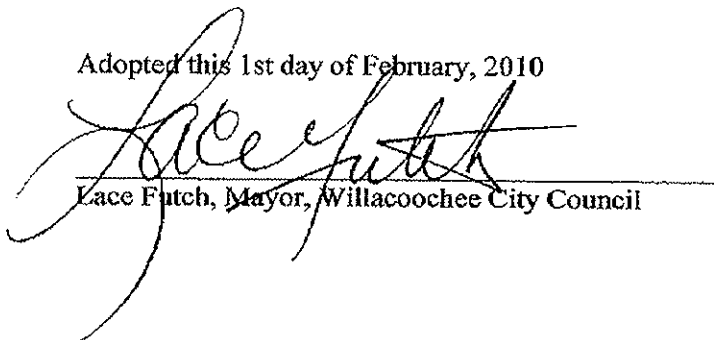 Adopted this 1st day of February, 2010
Lace Futch
Lace Futch, Mayor, Willacoochee City Council